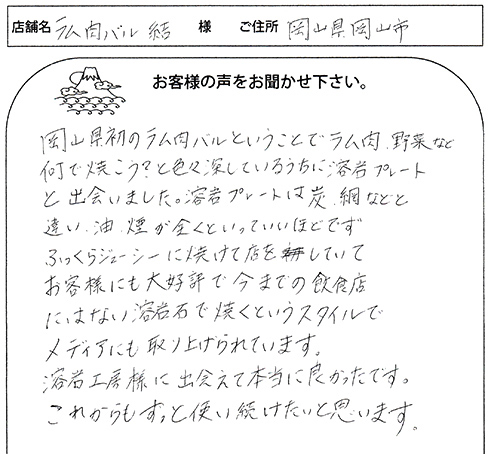 店舗名 ラム肉バル 結 様 ご住所 岡山県岡山市
お客様の声をお聞かせ下さい。
岡山県初のラム肉バルということでラム肉、野菜など
何で焼こう?と色々深しているうちに溶岩プレート
と出会いました。溶岩プレートは炭、網などと
違い、油、煙が全くといっていいほどでず
ふっくらジューシーに焼けて店を していて
お客様にも大好評で今までの飲食店
にはない溶岩石で焼くというスタイルで
メディアにも取り上げられています。
溶岩工房様に出会えて本当に良かったです。
これからもずっと使い続けたいと思います。